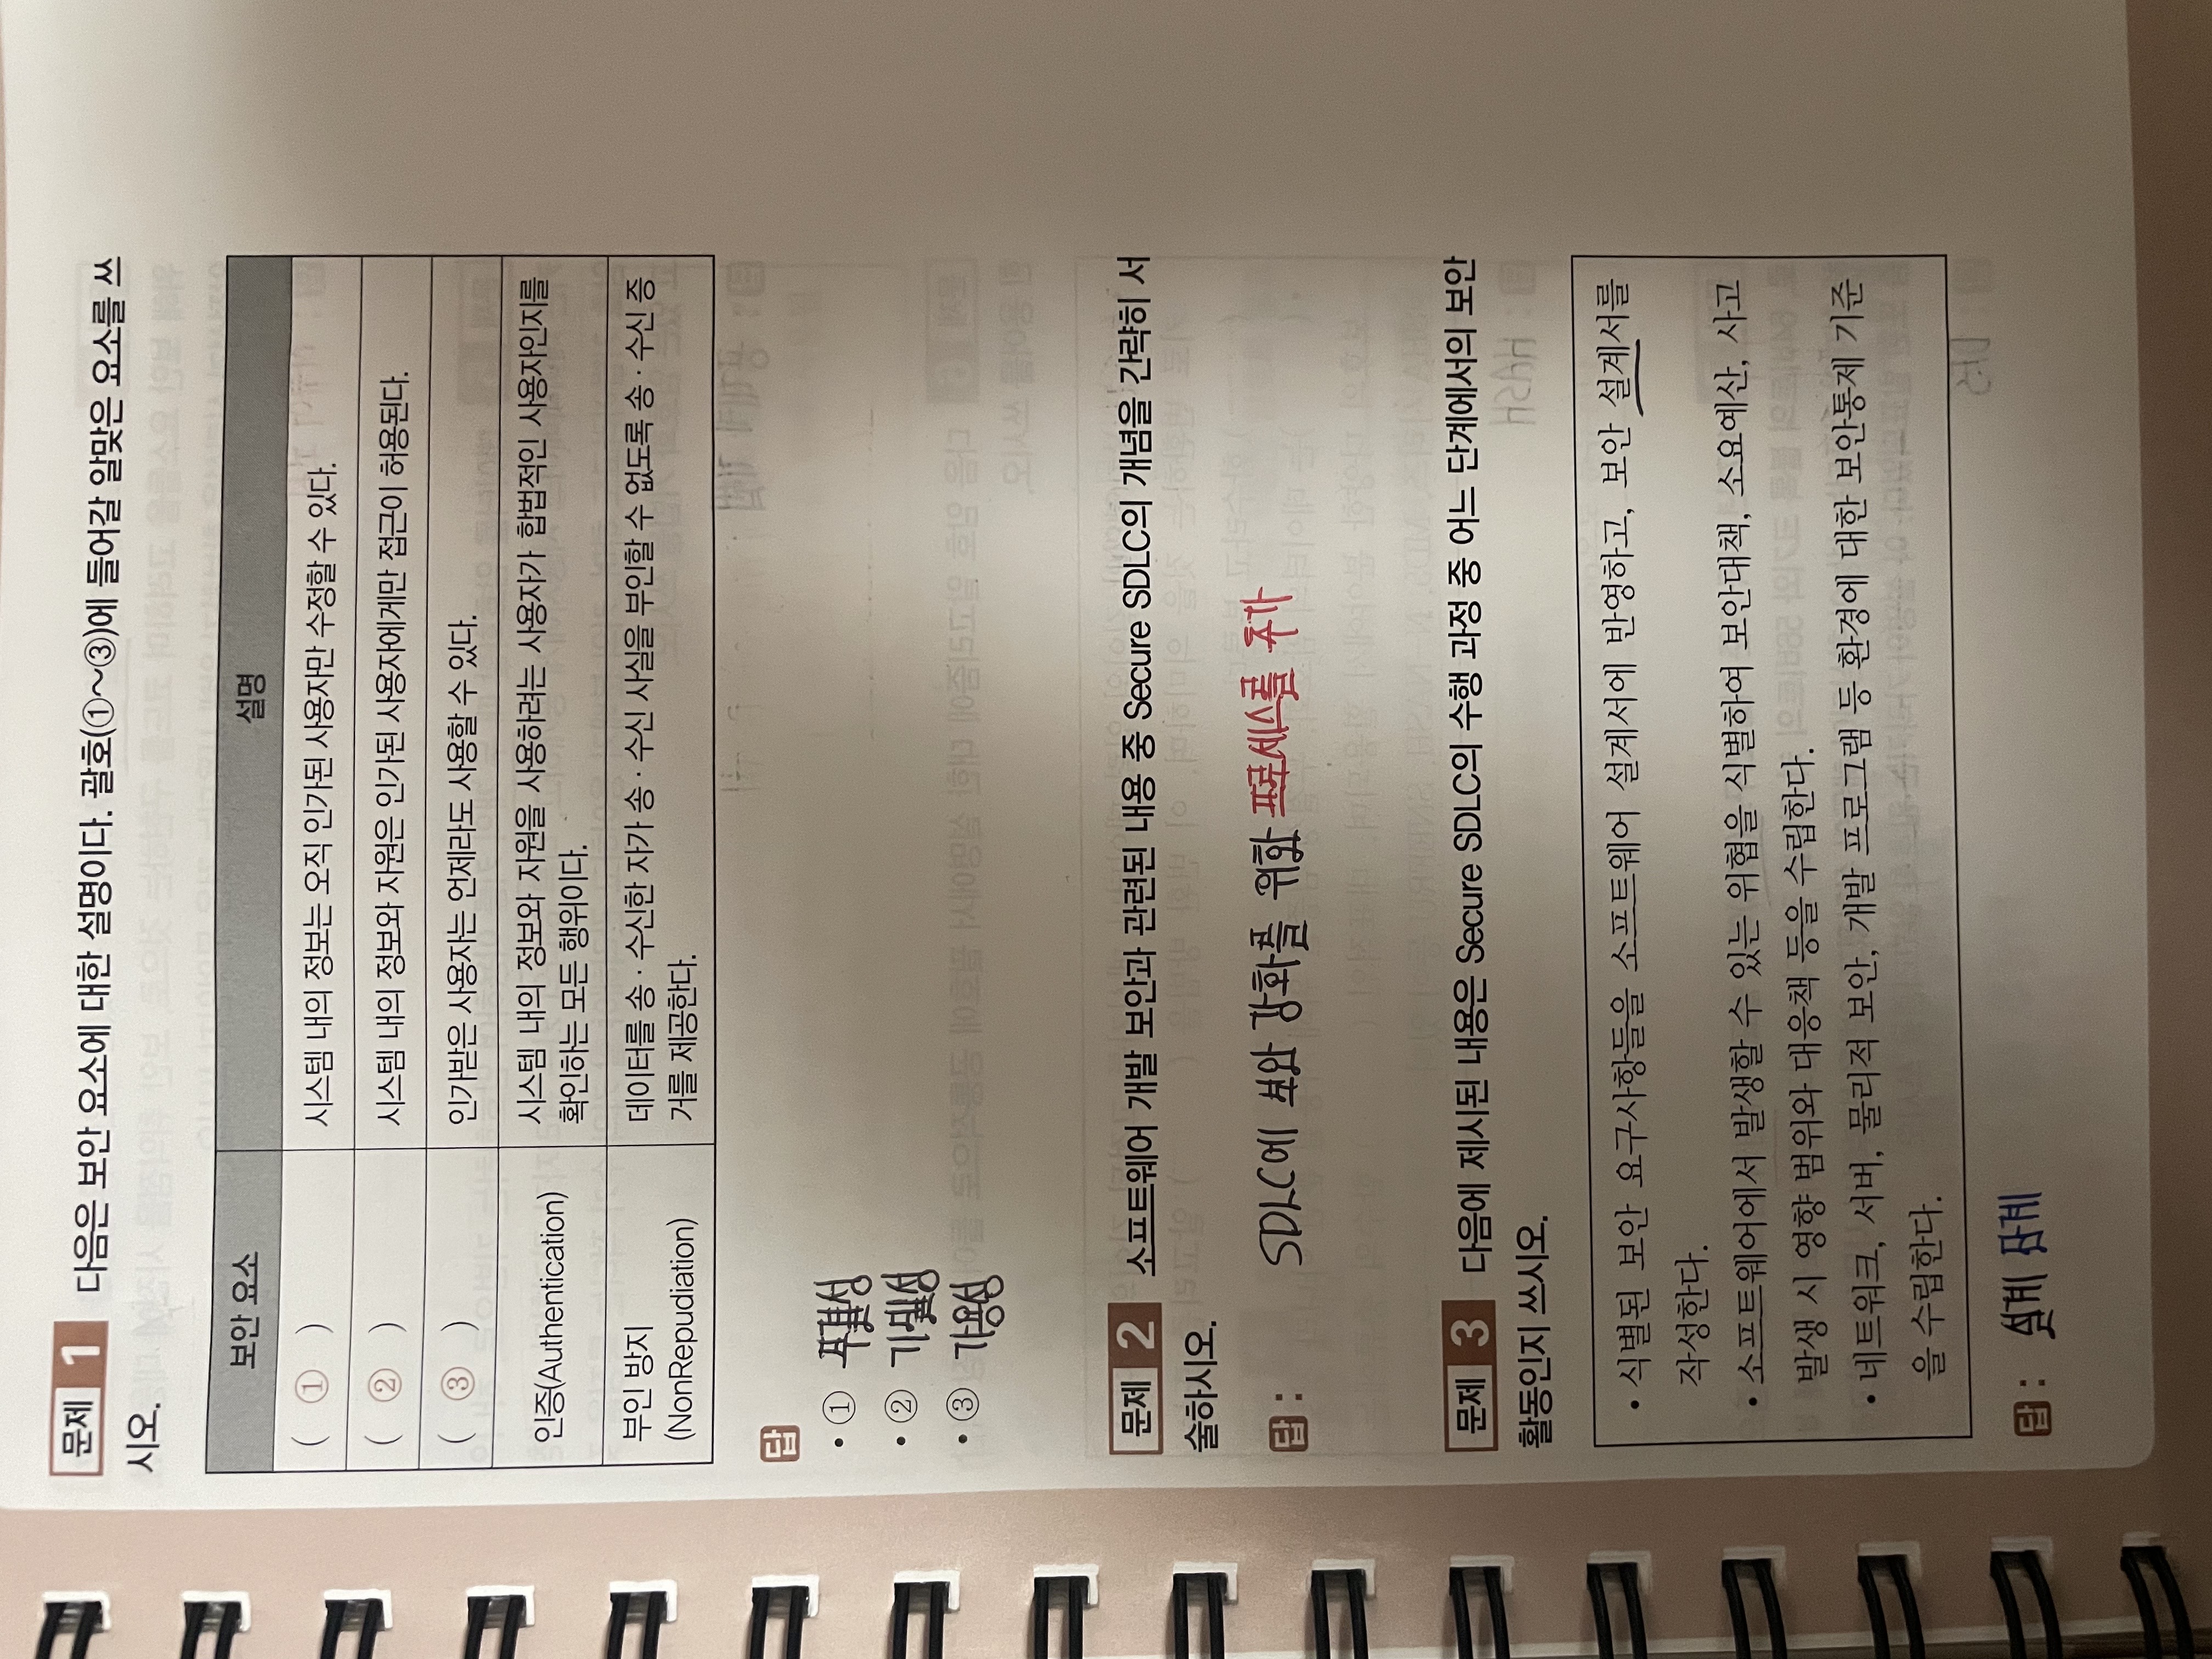 문제 1 다음은 보안 요소에 대한 설명이다. 괄호(①~③)에 들어갈 알맞은 요소를 쓰
시오.
보안 요소 설명
( ① ) 시스템 내의 정보는 오직 인가된 사용자만 수정할 수 있다.
( ② ) 시스템 내의 정보와 자원은 인가된 사용자에게만 접근이 허용된다.
( ③ ) 인가받은 사용자는 언제라도 사용할 수 있다.
인증(Authentication) 시스템 내의 정보와 자원을 사용하려는 사용자가 합법적인 사용자인지를
확인하는 모든 행위이다.
부인 방지 데이터를 송·수신한 자가 송·수신 사실을 부인할 수 없도록 송·수신 증
(NonRepudiation) 거를 제공한다.
답
• ① 무결성
• ② 기밀성
• ③ 가용성
문제 2 소프트웨어 개발 보안과 관련된 내용 중 Secure SDLC의 개념을 간략히 서
술하시오.
답 : SDLC에 보안 강화를 위한 프로세스를 추가
문제 3 다음에 제시된 내용은 Secure SDLC의 수행 과정 중 어느 단계에서의 보안
활동인지 쓰시오.
• 식별된 보안 요구사항들을 소프트웨어 설계서에 반영하고, 보안 설계서를
작성한다.
• 소프트웨어에서 발생할 수 있는 위협을 식별하여 보안대책, 소요예산, 사고
발생 시 영향 범위와 대응책 등을 수립한다.
• 네트워크, 서버, 물리적 보안, 개발 프로그램 등 환경에 대한 보안통제 기준
을 수립한다.
답 : 설계 단계